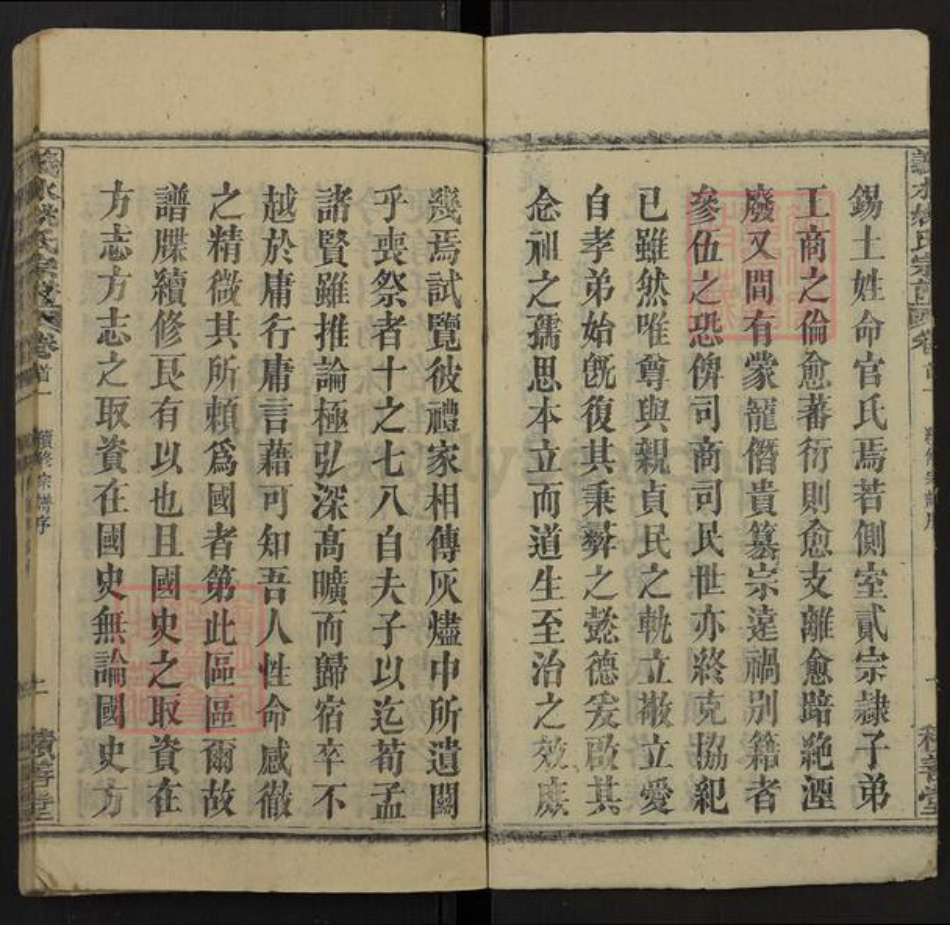 錫土姓命官氏焉若側室貳宗隷子弟
工商之倫愈蕃衍則愈支離愈踣絶湮
廢又間有蒙寵僭貴簒宗遠禍別籍者
參伍之恐俾司商司民世亦終克協紀
已雖然唯尊與親貞民之軌立敬立愛
自孝弟始旣復其秉彝之懿德爰啟其
念祖之孺思本立而道生至治之效庶
幾焉試覽彼禮家相傳灰燼中所遺闗
乎喪祭者十之七八自夫子以迄荀孟
諸賢雖推論極弘深高曠而歸宿卒不
越於庸行庸言藉可知吾人性命感徹
之精微其所賴爲國者第此區區爾故
譜牒續修良有以也且國史之取資在
方志方志之取資在國史無論國史方
氏宗譜
卷首一
續修宗譜序
二
積善堂